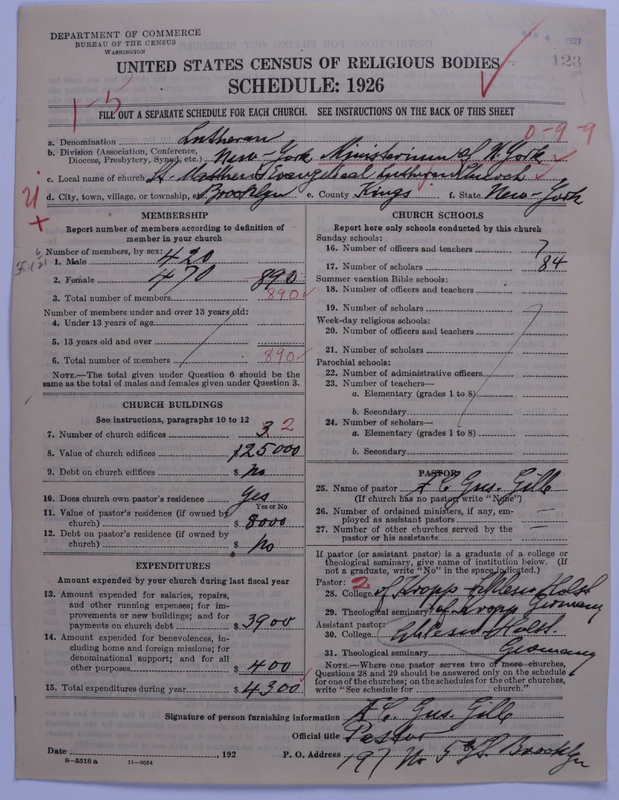 DEPARTMENT OF COMMERCE
BUREAU OF THE CENSUS
WASHINGTON
MAR 4 1927
123
UNITED STATES CENSUS OF RELIGIOUS BODIES
SCHEDULE: 1926
1-5
FILL OUT A SEPARATE SCHEDULE FOR EACH CHURCH. SEE INSTRUCTIONS ON THE BACK OF THIS SHEET
0-9-9
a. Denomination Lutheran
b. Division (Association, Conference, Diocese, Presbytery, Synod, etc.) New-York Ministerium of N. York
c. Local name of church St. Matthew's Evangelical Lutheran Church
d. City, town, village, or township, etc. Brooklyn e. County Kings f. State New-York
MEMBERSHIP
Report number of members according to definition of
member in your church
Number of members, by sex:
1. Male 420
2. Female 470 890
3. Total number of members 890
Number of members under and over 13 years old:
4. Under 13 years of age
5. 13 years old and over
6. Total number of members 890
NOTE.—The total given under Question 6 should be the
same as the total of males and females given under Question 3.
CHURCH BUILDINGS
See instructions, paragraphs 10 to 12
7. Number of church edifices 3 2
8. Value of church edifices $125000
9. Debt on church edifices $ no
10. Does church own pastor's residence yes
Yes or No
11. Value of pastor's residence (if owned by
church) $ 8000
12. Debt on pastor's residence (if owned by
church) $ no
EXPENDITURES
Amount expended by your church during last fiscal year
13. Amount expended for salaries, repairs,
and other running expenses; for im-
provements or new buildings; and for
payments on church debt $ 3900
14. Amount expended for benevolences, in-
cluding home and foreign missions; for
denominational support; and for all
other purposes $ 400
15. Total expenditures during year $ 4300
CHURCH SCHOOLS
Report here only schools conducted by this church
Sunday schools:
16. Number of officers and teachers 7
17. Number of scholars 84
Summer vacation Bible schools:
18. Number of officers and teachers
19. Number of scholars
Week-day religious schools:
20. Number of officers and teachers
21. Number of scholars
Parochial schools:
22. Number of administrative officers
23. Number of teachers—
a. Elementary (grades 1 to 8)
b. Secondary
24. Number of scholars—
a. Elementary (grades 1 to 8)
b. Secondary
PASTOR
25. Name of pastor Gus. Gille
(If church has no pastor, write "None")
26. Number of ordained ministers, if any, em-
ployed as assistant pastors —
27. Number of other churches served by the
pastor or his assistants —
If pastor (or assistant pastor) is a graduate of a college or
theological seminary, give name of institution below. (If
not a graduate, write "No" in the space indicated.)
Pastor: 2
28. College of Kropp Holst
29. Theological seminary of Kropp Germany
Assistant pastor:
30. College Holst.
31. Theological seminary Germany
NOTE.—Where one pastor serves two or more churches,
Questions 28 and 29 should be answered only on the schedule
for one of the churches; on the schedules for the other churches,
write "See schedule for church."
Signature of person furnishing information Gus. Gille
Official title Pastor
Date , 192 P. O. Address 197 No 5th St. Brooklyn
8—5518 a 11—9054